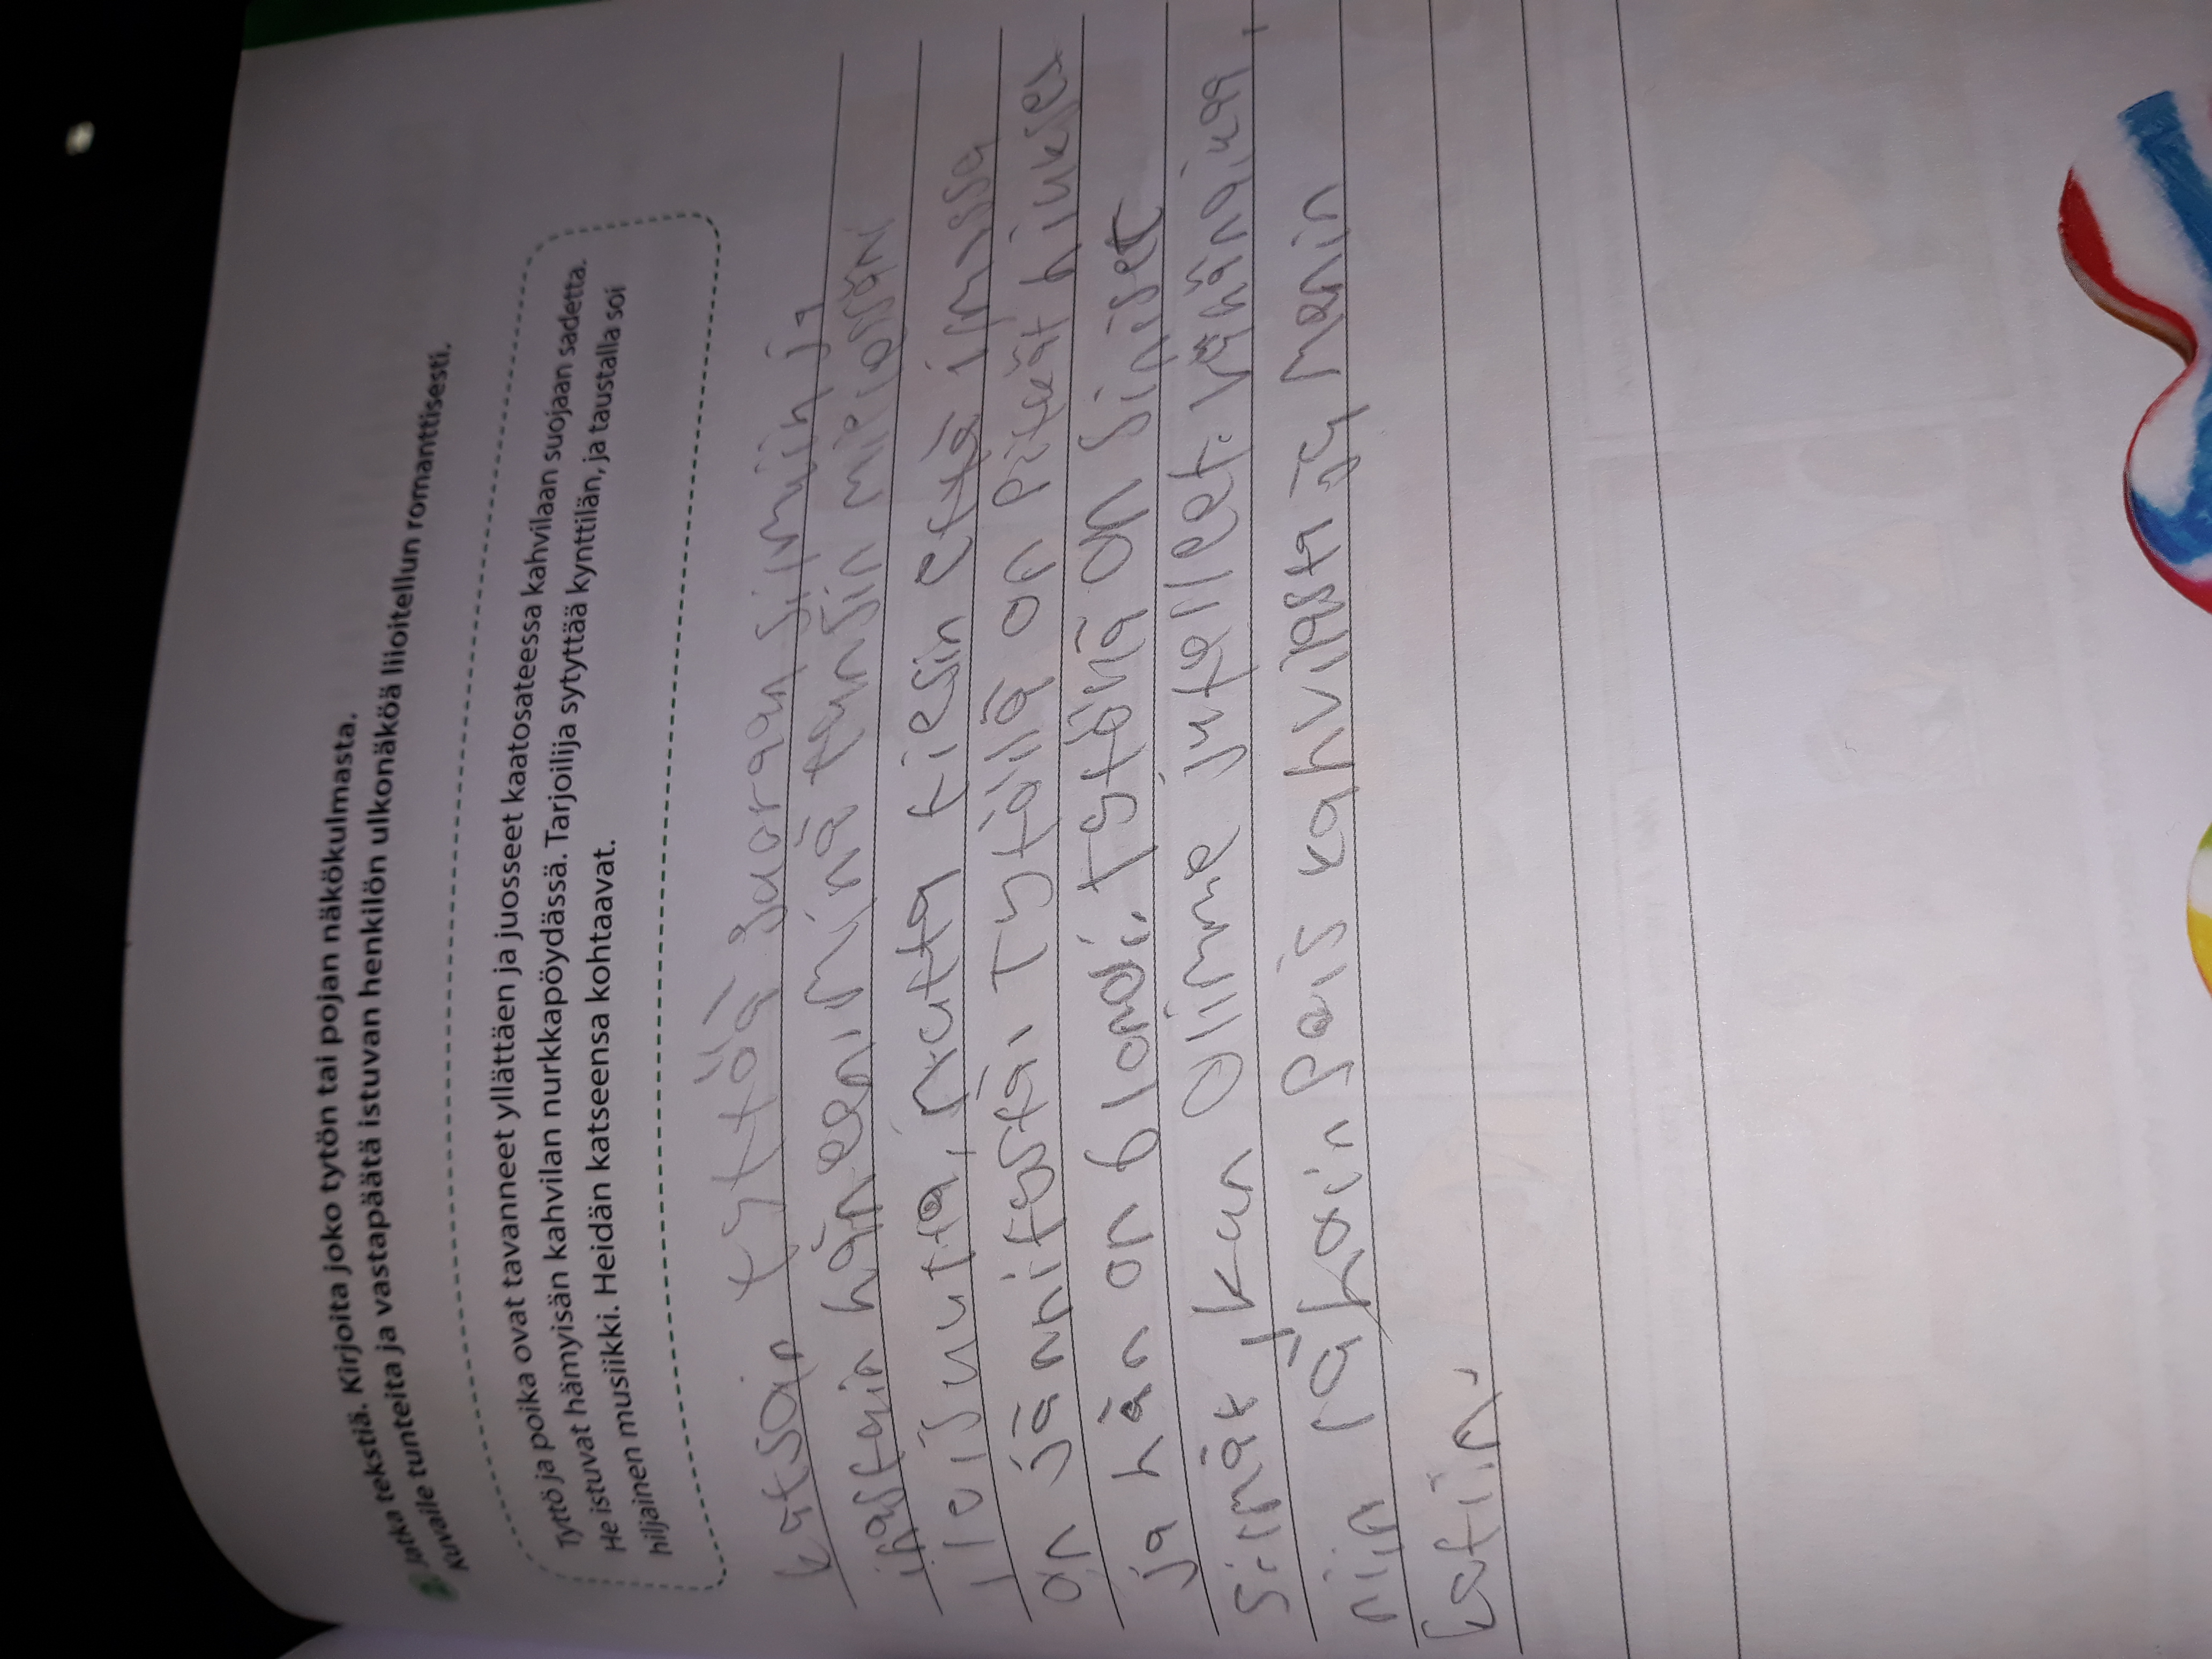 2. Jatka tekstiä. Kirjoita joko tytön tai pojan näkökulmasta.
Kuvaile tunteita ja vastapäätä istuvan henkilön ulkonäköä liioitellun romanttisesti.
Tyttö ja poika ovat tavanneet yllättäen ja juosseet kaatosateessa kahvilaan suojaan sadetta.
He istuvat hämyisän kahvilan nurkkapöydässä. Tarjoilija sytyttää kynttilän, ja taustalla soi
hiljainen musiikki. Heidän katseensa kohtaavat.
katsoin tyttöä suoraan silmiin ja
ihastuin häneen. minä tunsin mielessäni
iloisuutta, mutta tiesin että ilmassa
on jännitystä. Tytöllä on pitkät hiukset
ja hän on blondi. Tytöllä on siniset
silmät, kun olimme jutelleet vähänaikaa,
niin lähdin pois kahvilasta ja menin
kotiin.